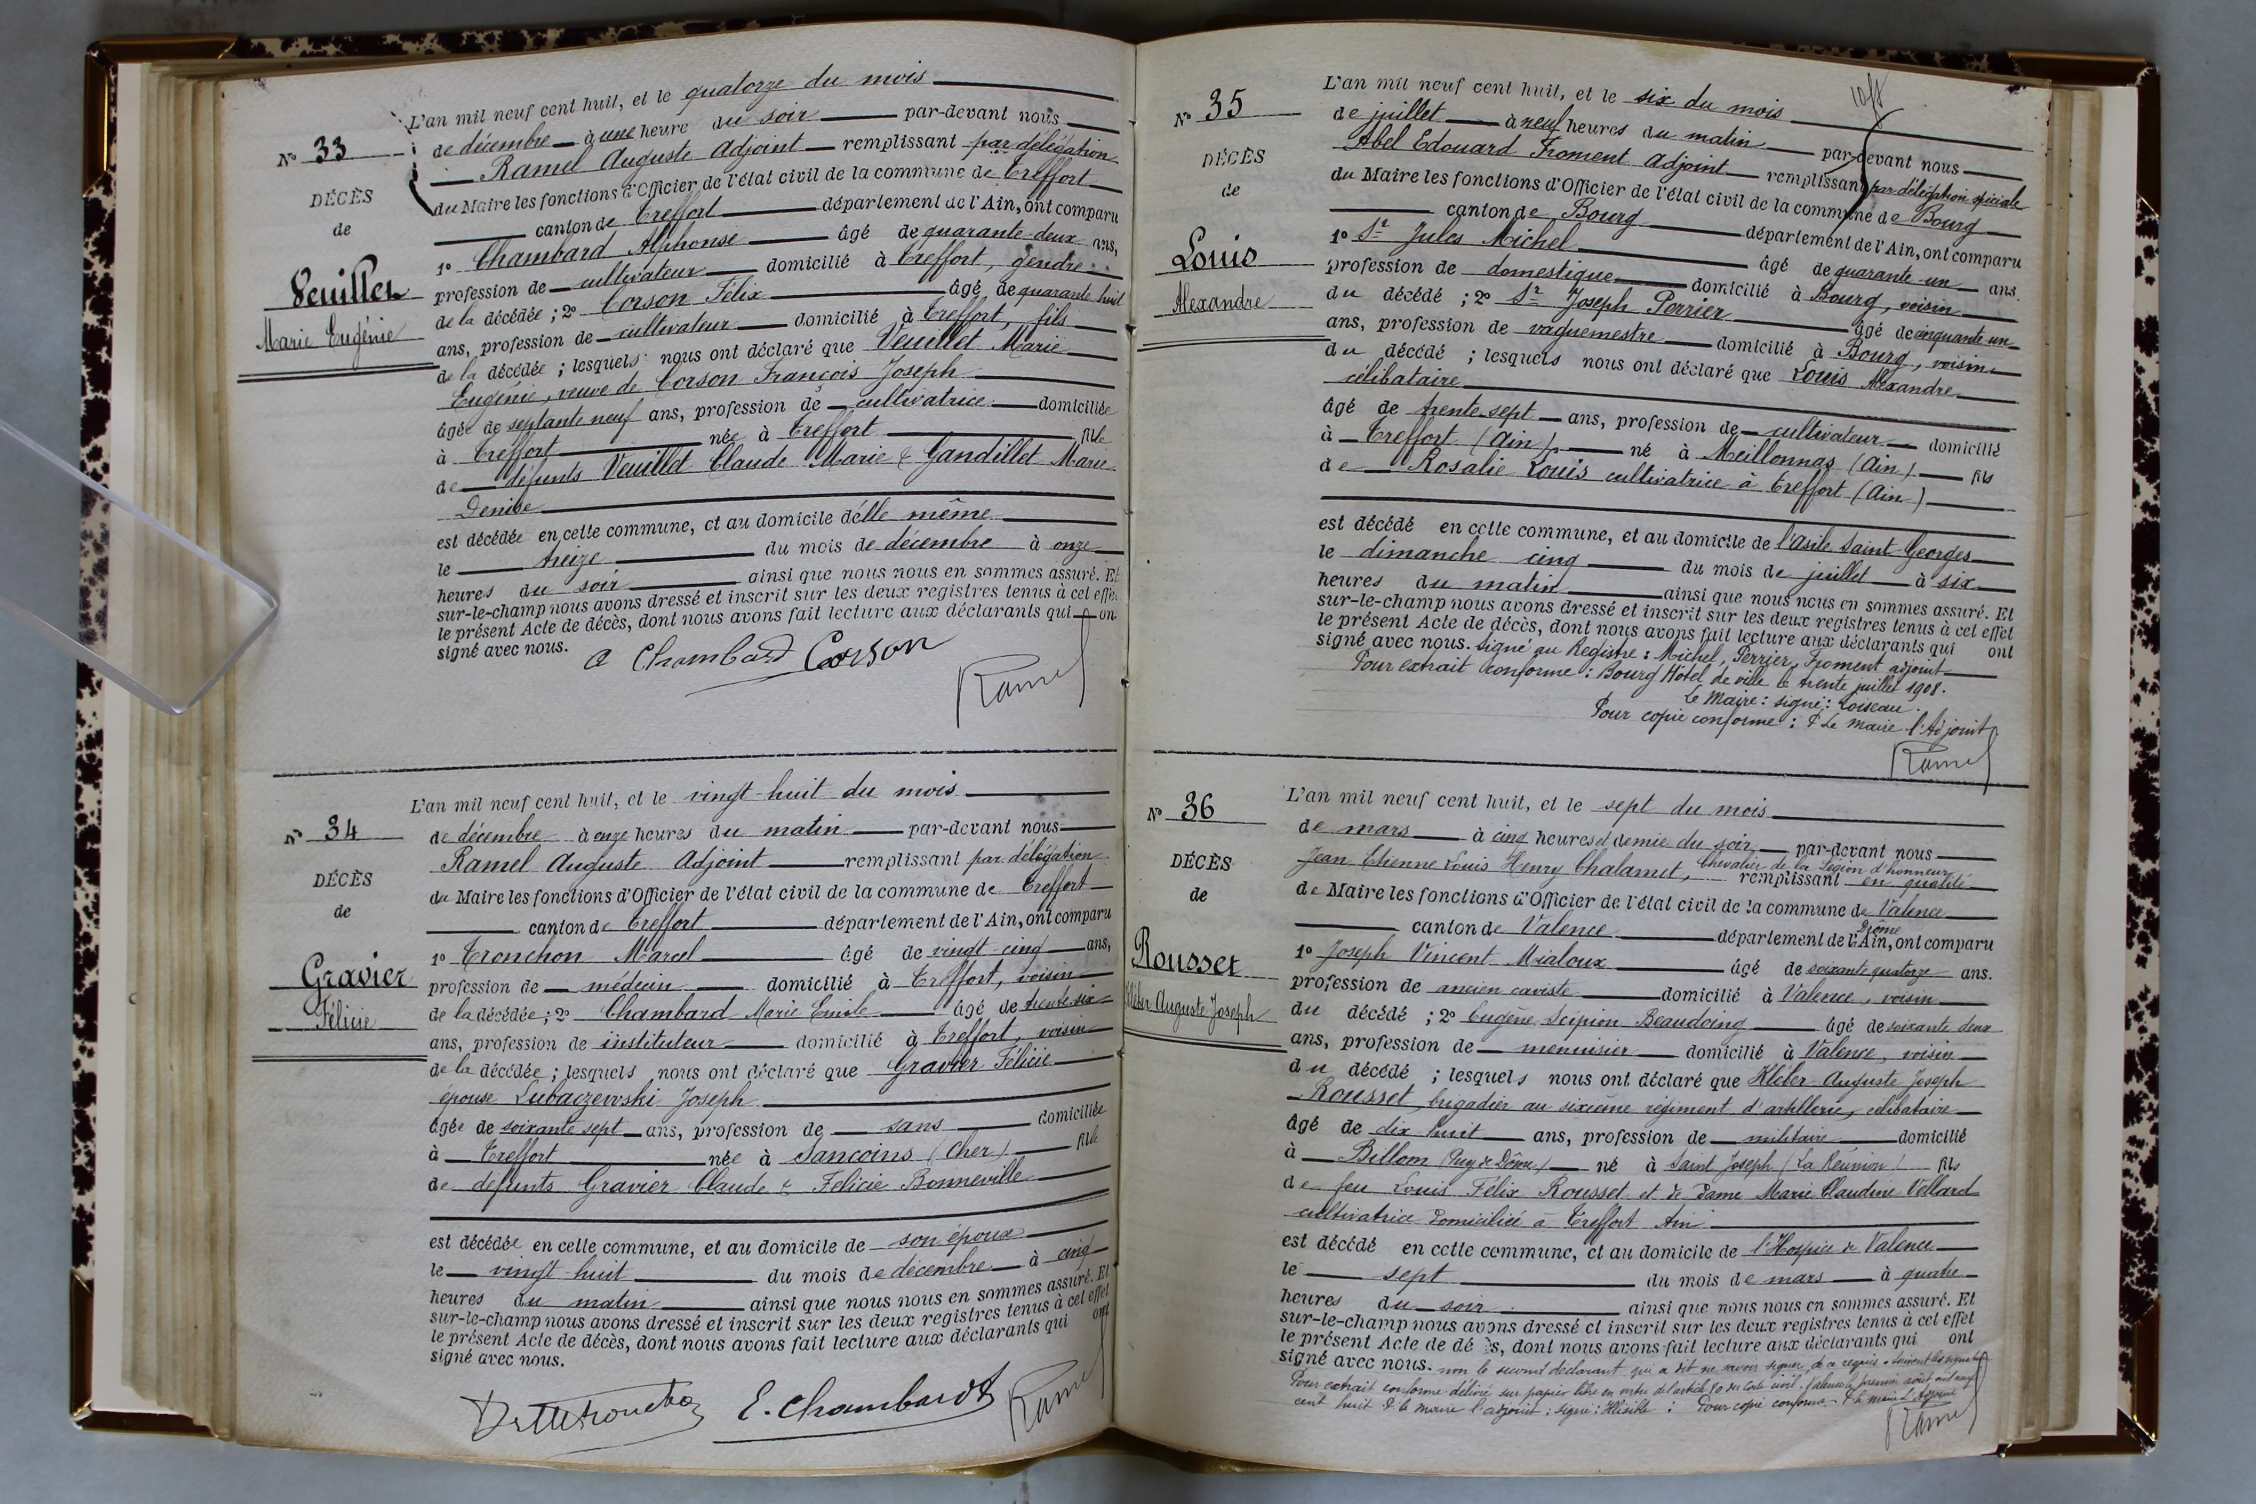 N° 33
DÉCÈS
de
Veuillet
Marie Eugénie
L'an mil neuf cent huit, et le quatorze du mois
de décembre à une heure du soir par-devant nous
Ramel Auguste Adjoint remplissant par délégation
du Maire les fonctions d'Officier de l'état civil de la commune de Treffort
canton de Treffort département de l'Ain, ont comparu
1° Chambard Alphonse âgé de quarante-deux ans,
profession de cultivateur domicilié à Treffort, gendre
de la décédée ; 2° Corson Félix âgé de quarante huit
ans, profession de cultivateur domicilié à Treffort, fils
de la décédée ; lesquels nous ont déclaré que Veuillet Marie
Eugénie, veuve de Corson François Joseph
âgée de septante neuf ans, profession de cultivatrice domiciliée
à Treffort née à Treffort fille
de défunts Veuillet Claude Marie & Gandillet Marie
Denise
est décédée en cette commune, et au domicile d'elle même
le treize du mois de décembre à onze
heures du soir ainsi que nous nous en sommes assuré. Et
sur-le-champ nous avons dressé et inscrit sur les deux registres tenus à cet effet
le présent Acte de décès, dont nous avons fait lecture aux déclarants qui ont
signé avec nous.
A Chambard Corson
Ramel
N° 34
DÉCÈS
de
Gravier
Félicie
L'an mil neuf cent huit, et le vingt-huit du mois
de décembre à onze heures du matin par-devant nous
Ramel Auguste Adjoint remplissant par délégation
du Maire les fonctions d'Officier de l'état civil de la commune de Treffort
canton de Treffort département de l'Ain, ont comparu
1° Tronchon Marcel âgé de vingt-cinq ans,
profession de médecin domicilié à Treffort, voisin
de la décédée ; 2° Chambard Marie Emile âgé de trente-six
ans, profession de instituteur domicilié à Treffort, voisin
de la décédée ; lesquels nous ont déclaré que Gravier Félicie
épouse Lubaczewski Joseph
âgée de soixante sept ans, profession de sans domiciliée
à Treffort née à Sancoins (Cher) fille
de défunts Gravier Claude & Félicie Bonneville
est décédée en cette commune, et au domicile de son époux
le vingt-huit du mois de décembre à cinq
heures du matin ainsi que nous nous en sommes assuré. Et
sur-le-champ nous avons dressé et inscrit sur les deux registres tenus à cet effet
le présent Acte de décès, dont nous avons fait lecture aux déclarants qui ont
signé avec nous.
E. Chambard Ramel
N° 35
DÉCÈS
de
Louis
Alexandre
L'an mil neuf cent huit, et le six du mois
de juillet à neuf heures du matin par-devant nous
Abel Edouard Froment Adjoint remplissant par délégation spéciale
du Maire les fonctions d'Officier de l'état civil de la commune de Bourg
canton de Bourg département de l'Ain, ont comparu
1° Sr Jules Michel âgé de quarante-un ans.
profession de domestique domicilié à Bourg, voisin
du décédé ; 2° Sr Joseph Perrier âgé de cinquante un
ans, profession de vaguemestre domicilié à Bourg, voisin
du décédé ; lesquels nous ont déclaré que Louis Alexandre
célibataire
âgé de trente-sept ans, profession de cultivateur domicilié
à Treffort (Ain) né à Meillonnas (Ain) fils
de Rosalie Louis cultivatrice à Treffort (Ain)
est décédé en cette commune, et au domicile de l'asile Saint Georges
le dimanche cinq du mois de juillet à six
heures du matin ainsi que nous nous en sommes assuré. Et
sur-le-champ nous avons dressé et inscrit sur les deux registres tenus à cet effet
le présent Acte de décès, dont nous avons fait lecture aux déclarants qui ont
signé avec nous. Signé au Registre : Michel, Perrier, Froment adjoint
Pour extrait conforme : Bourg Hôtel de ville le trente juillet 1908.
Le Maire : signé : Loiseau.
Pour copie conforme : P Le maire l'Adjoint
Ramel
N° 36
DÉCÈS
de
Rousset
Kléber Auguste Joseph
L'an mil neuf cent huit, et le sept du mois
de mars à cinq heures et demie du soir par-devant nous
Jean Etienne Louis Henry Chalamet, Chevalier de la Légion d'honneur remplissant en qualité
de Maire les fonctions d'Officier de l'état civil de la commune de Valence
canton de Valence département de l'Ain, ont comparu
Drôme
1° Joseph Vincent Mialoux âgé de soixante quatorze ans.
profession de ancien caviste domicilié à Valence, voisin
du décédé ; 2° Eugène Scipion Beaudoing âgé de soixante deux
ans, profession de menuisier domicilié à Valence, voisin
du décédé ; lesquels nous ont déclaré que Kléber Auguste Joseph
Rousset, brigadier au sixième régiment d'artillerie, célibataire
âgé de dix huit ans, profession de militaire domicilié
à Billom (Puy de Dôme) né à Saint Joseph (La Réunion) fils
de feu Louis Félix Rousset et de Dame Marie Claudine Vellard
cultivatrice domiciliée à Treffort Ain
est décédé en cette commune, et au domicile de l'Hospice de Valence
le sept du mois de mars à quatre
heures du soir ainsi que nous nous en sommes assuré. Et
sur-le-champ nous avons dressé et inscrit sur les deux registres tenus à cet effet
le présent Acte de décès, dont nous avons fait lecture aux déclarants qui ont
signé avec nous. non le second déclarant qui a dit ne savoir signer de ce requis. Suivent les signatures
Pour extrait conforme délivré sur papier libre en vertu de l'article 80 du Code civil. Valence le premier août mil neuf
cent huit P le maire l'adjoint : signé : Illisible : Pour copie conforme P le maire L'Adjoint
Ramel